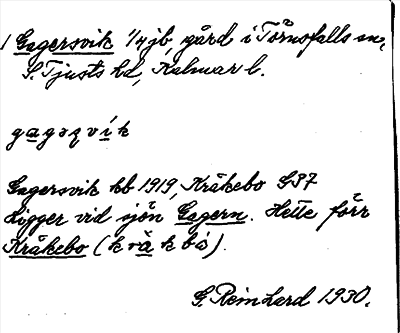 1 Gagersvik 1/4 jb, gård i Törnsfalls sn,
S. Tjusts hd, Kalmar l.
gagəʂvík
Gagersvik kb 1919, Kråkebo GS7
Ligger vid sjön Gagern. Hette förr
Kråkebo (kråkbo).
G. Reinhard 1930.